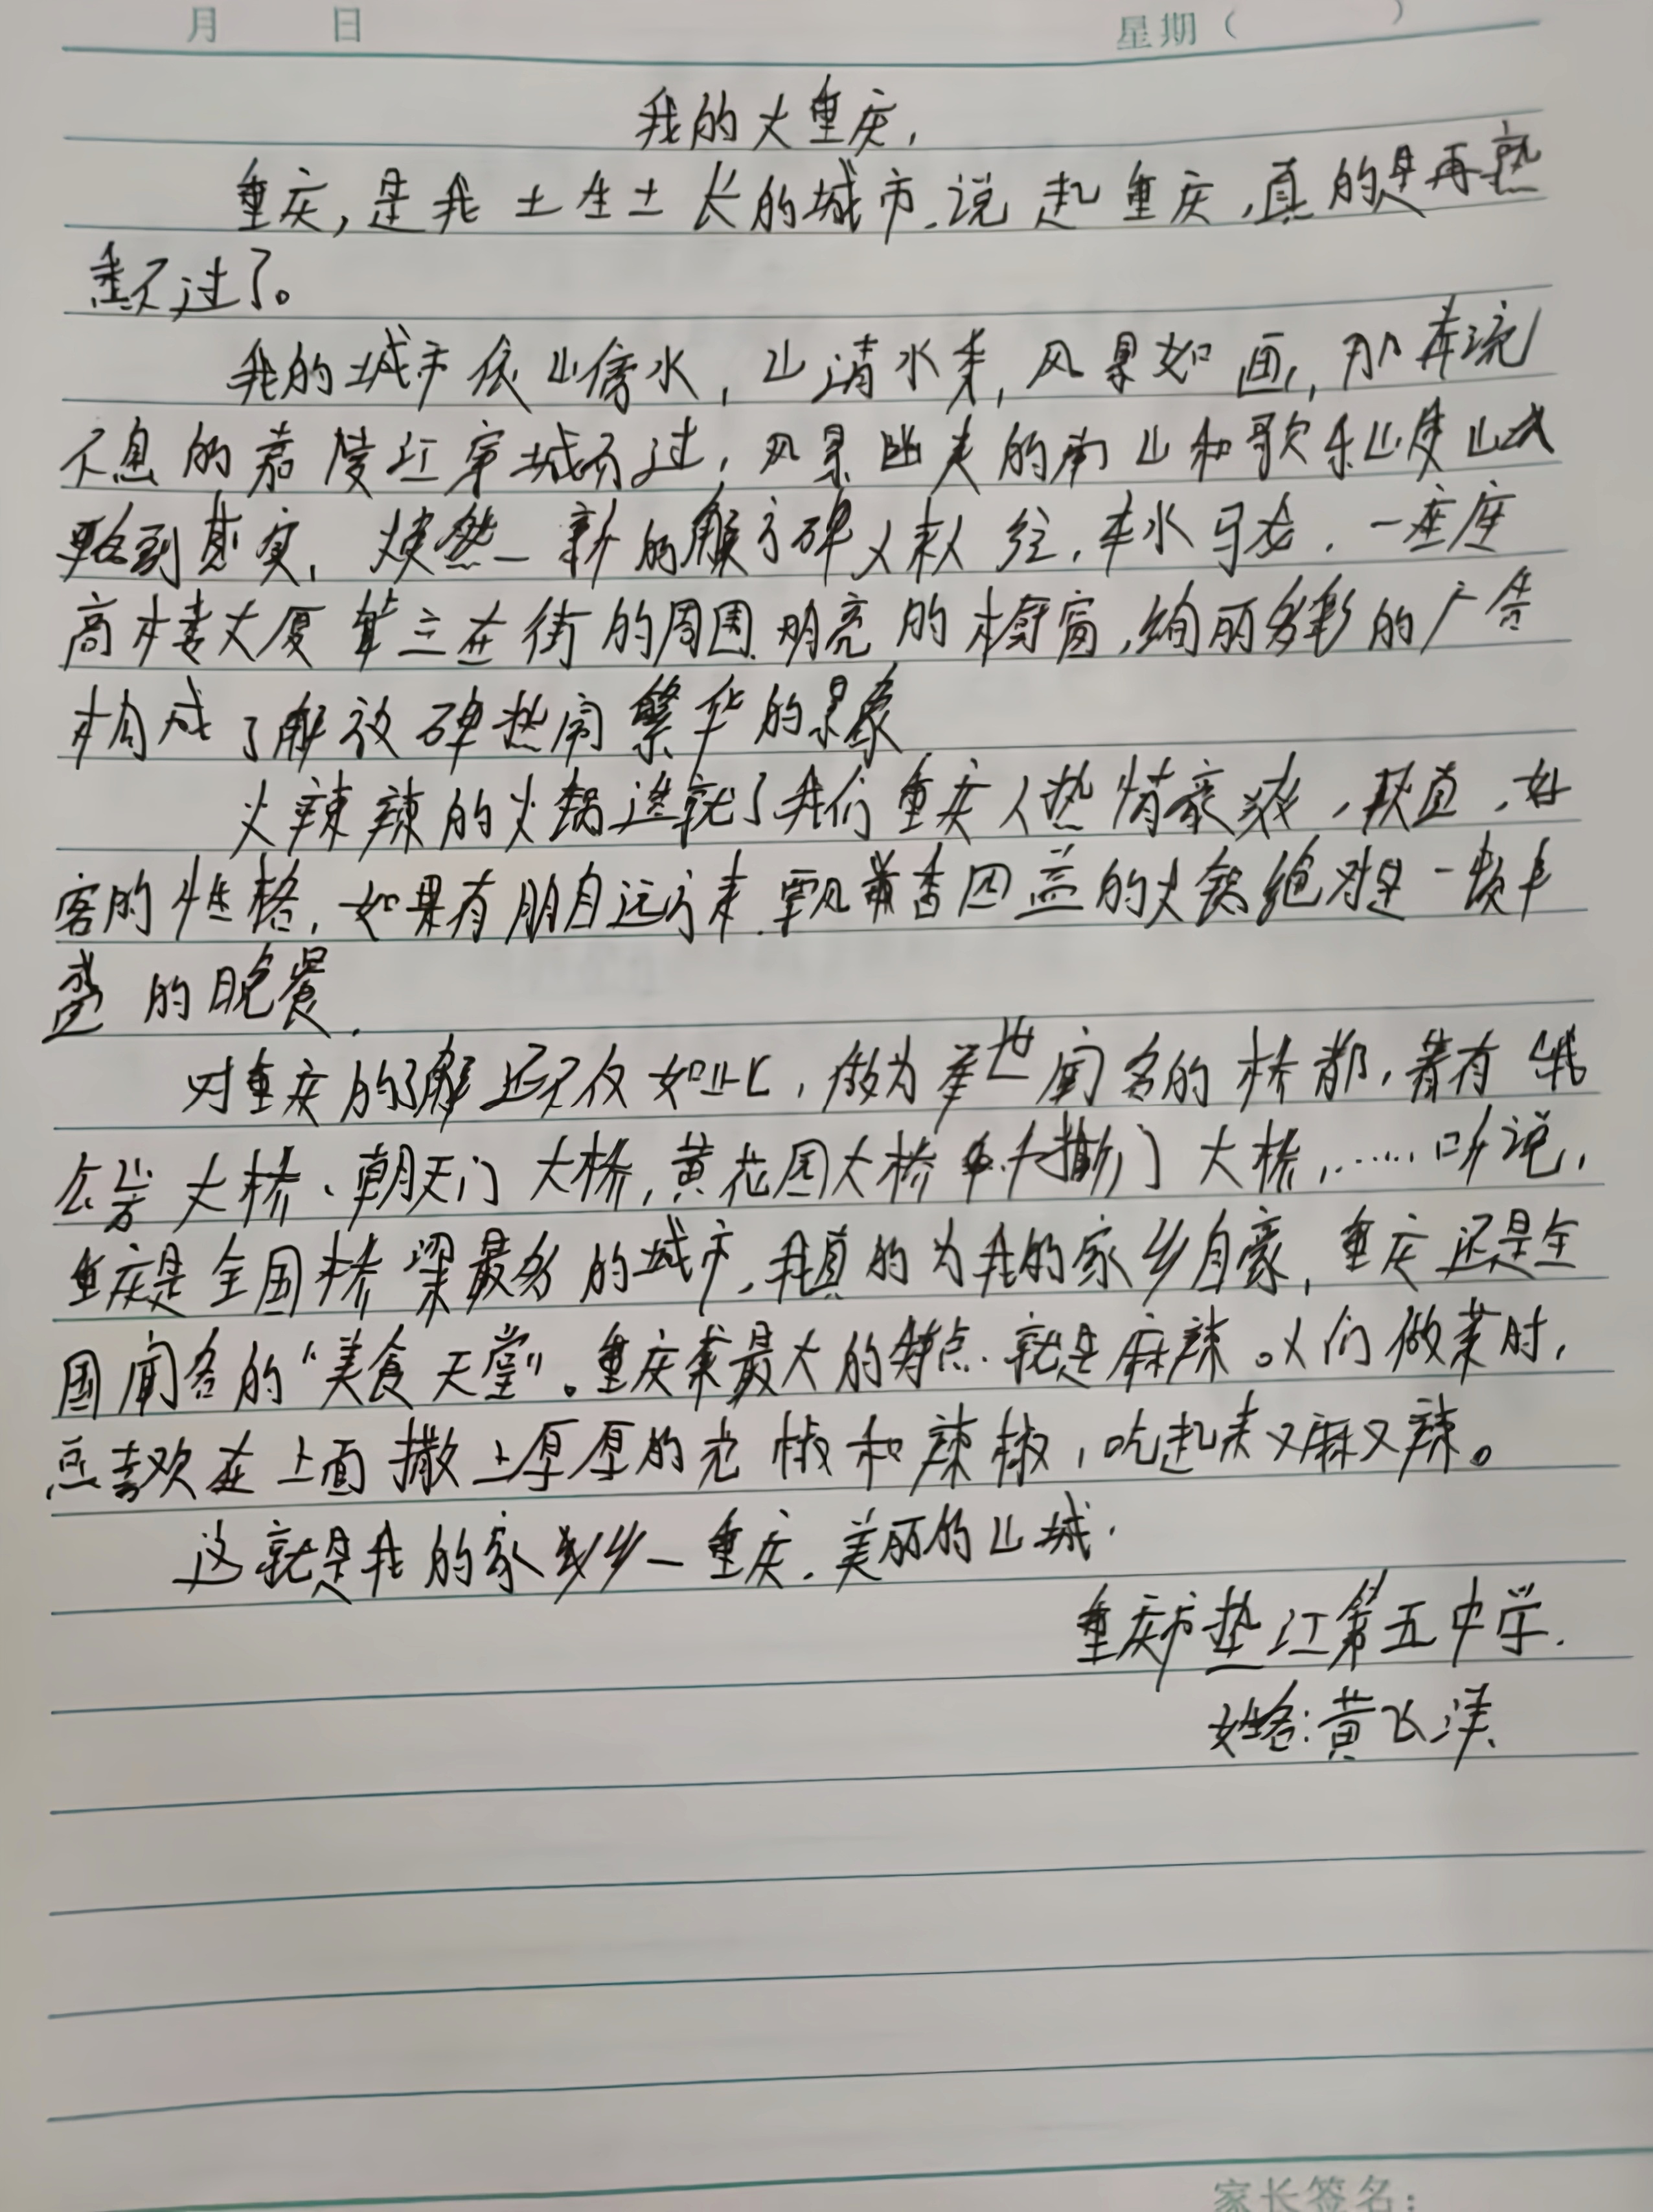 月 日 星期（ ）
我的大重庆，
重庆，是我土生土长的城市.说起重庆，真的是再熟
悉不过了。
我的城市依山傍水，山清水秀，风景如画，那奔流
不息的嘉陵江穿城而过，风景幽美的南山和歌乐山使山城
名到其实，焕然一新的解方碑人来人往，车水马龙，一座座
高楼大厦耸立在街的周围.明亮的橱窗，绚丽多彩的广告
构成了解放碑热闹繁华的景象
火辣辣的火锅造就了我们重庆人热情豪爽，耿直，好
客的性格，如果有朋自远方来.飘香四益的火锅绝对是一顿丰
盛的晚餐.
对重庆的了解还不仅如此，做为举世闻名的桥都，着有
大桥、朝天门大桥，黄花园大桥 门大桥，……听说，
重庆是全国桥梁最多的城市，我真的为我的家乡自豪，重庆还是全
国闻名的“美食天堂”。重庆菜最大的特点.就是麻辣。人们做菜时，
总喜欢在上面撒上厚厚的花椒和辣椒，吃起来又麻又辣。
这就是我的家乡一重庆.美丽的山城.
重庆市垫江第五中学.
姓名:黄飞洋
家长签名：